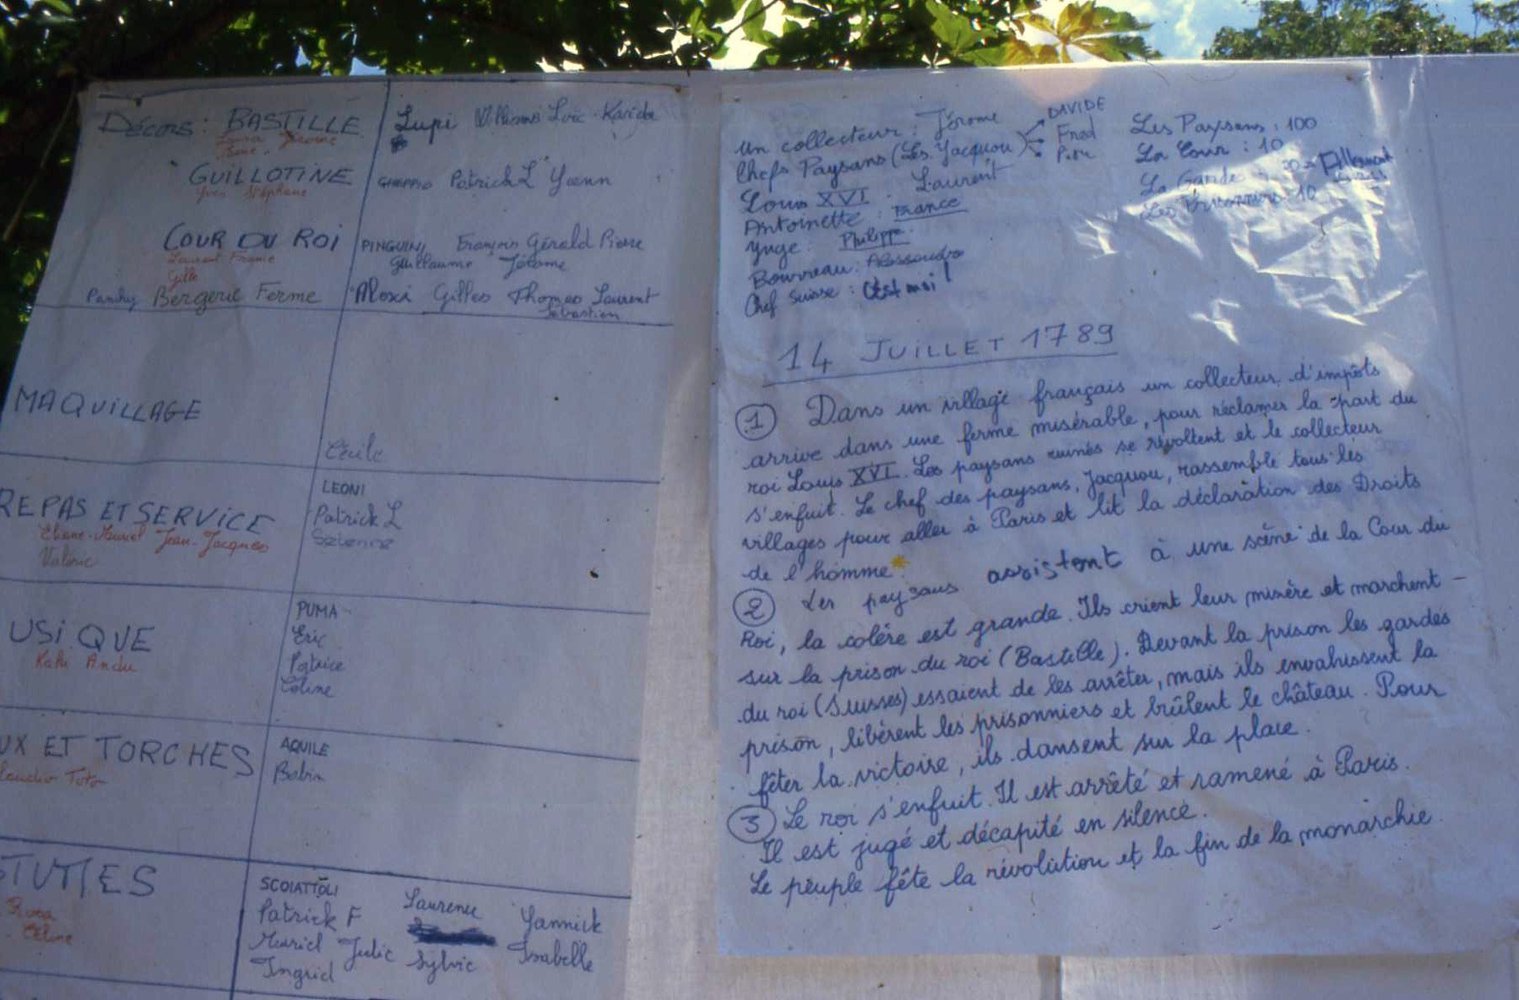 Décors: BASTILLE Lupi Loïc - Karida
GUILLOTINE Patrick L Yoann
Yves Stéphane
COUR DU ROI PINGUINI François Gérald Pierre
Laurent France Guillaume Jérôme
Gille
Bergerie Ferme Gilles Thomas Laurent
Sébastien
MAQUILLAGE
Cécile
REPAS ET SERVICE LEONI
Patrick L
Jean-Jacques
Valérie
USIQUE PUMA
Eric
Patrice
Céline
UX ET TORCHES AQUILE
Toto
TUMES SCOIATTOLI
Patrick F Laurence Yannick
Rosa
Céline
Muriel Julie Sylvie Isabelle
Ingrid
un collecteur: Jérôme
Chefs Paysans (Les Jacquou) DAVIDE
Fred
Laurent
Louis XVI
Antoinette: France
Yuge: Philippe
Bourreau: Alessandro
Chef Suisse: C'est moi!
Les Paysans: 100
La Cour: 10
La Garde
Les Prisonniers: 10
14 JUILLET 1789
1 Dans un village français un collecteur d'impôts
arrive dans une ferme misérable, pour réclamer la part du
roi Louis XVI. Les paysans ruinés se révoltent et le collecteur
s'enfuit. Le chef des paysans, Jacquou, rassemble tous les
villages pour aller à Paris et lit la déclaration des Droits
de l'homme.
2 Les paysans assistent à une scène de la Cour du
Roi, la colère est grande. Ils crient leur misère et marchent
sur la prison du roi (Bastille). Devant la prison les gardes
du roi (Suisses) essaient de les arrêter, mais ils envahissent la
prison, libèrent les prisonniers et brûlent le château. Pour
fêter la victoire, ils dansent sur la place.
3 Le roi s'enfuit. Il est arrêté et ramené à Paris.
Il est jugé et décapité en silence.
Le peuple fête la révolution et la fin de la monarchie.